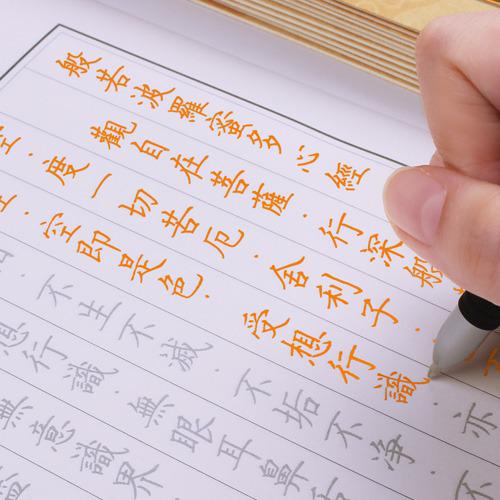 般若波羅蜜多心經
觀自在菩薩．行深般
．度一切苦厄．舍利子．
．空即是色．受想行識．亦
．不生不滅．不垢不淨．
想行識．無眼耳鼻
無意識界